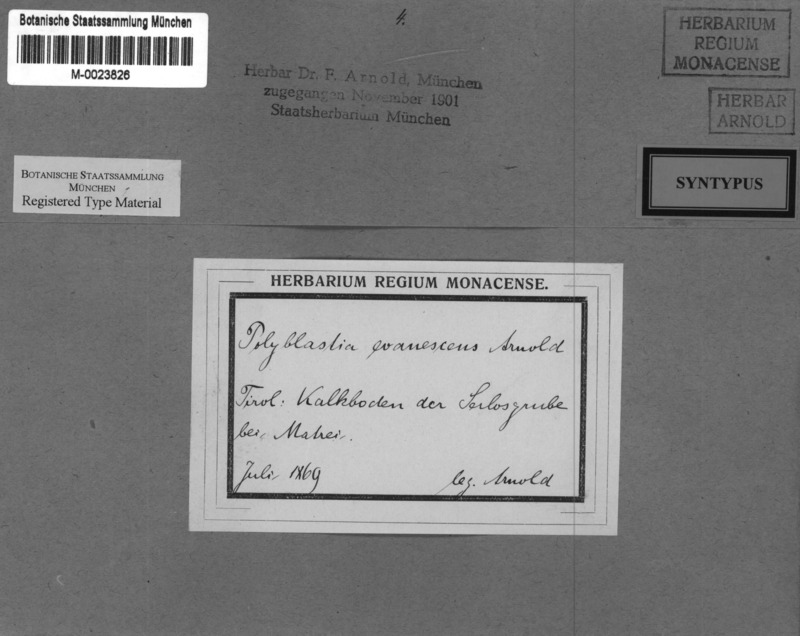 Botanische Staatssammlung München
M-0023826
4.
Herbar Dr. F. Arnold, München
zugegangen November 1901
Staatsherbarium München
HERBARIUM
REGIUM
MONACENSE
HERBAR
ARNOLD
BOTANISCHE STAATSSAMMLUNG
MÜNCHEN
Registered Type Material
SYNTYPUS
HERBARIUM REGIUM MONACENSE.
Polyblastia evanescens Arnold
Tirol: Kalkboden der Serlosgrube
bei Matrei.
Juli 1869
leg. Arnold